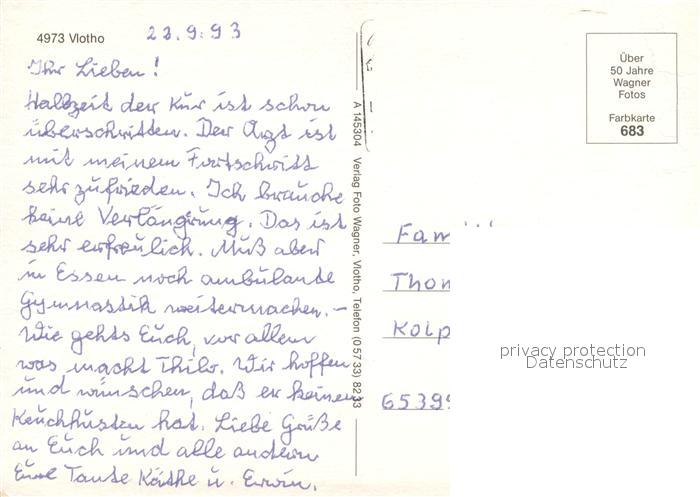 4973 Vlotho
23.9.93
Ihr Lieben!
Halbzeit der Kur ist schon
überschritten. Der Arzt ist
mit meinem Fortschritt
sehr zufrieden. Ich brauche
keine Verlängrung. Das ist
sehr erfreulich. Muß aber
in Essen noch ambulante
Gymnastik weitermachen. –
Wie gehts Euch, vor allem
was macht Thilo. Wir hoffen
und wünschen, daß er keinen
Keuchhusten hat. Liebe Grüße
an Euch und alle andern
Eure Tante Käthe u. Erwin.
A 145304 Verlag Foto Wagner, Vlotho, Telefon (05733) 8233
Über
50 Jahre
Wagner
Fotos
Farbkarte
683
Fam
Thom
Kolp
65399
privacy protection
Datenschutz